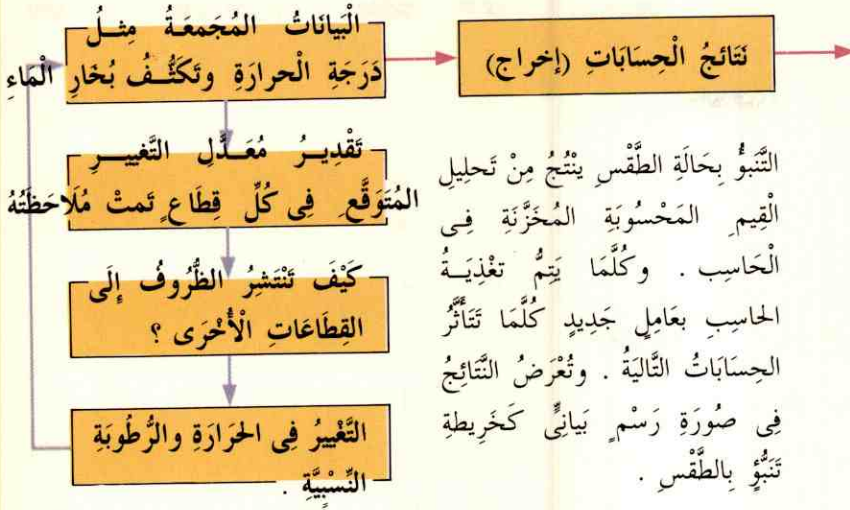 الْبَيانَاتُ المُجَمعَةُ مِثلُ
دَرَجَةِ الْحرارَةِ وتَكَثُّف بُخَارِ الْمَاءِ
تَقْدِيرُ مُعَدَّلِ التَّغييرِ
المُتَوَقَّعِ فِى كُلِّ قِطَاعٍ تَمتْ مُلَاحَظَتُهُ
كَيْفَ تَنْتَشِرُ الظُّرُوفُ إِلَى
القِطَاعَاتِ الْأُخْرَى ؟
التَّغْيِيرُ فِى الحَرَارَةِ والرُّطُوبَةِ
النِّسْبِيَّةِ .
نَتَائجُ الْحِسَابَاتِ (إخراج)
التَّنَبؤُ بِحَالَةِ الطَّقْسِ ينْتُجُ مِنْ تَحلِيلِ
الْقِيمِ المَحْسُوبَةِ المُخَزَّنَةِ فِى
الْحَاسِب . وكُلَّمَا يَتِمُّ تغْذِيَةُ
الحاسِبِ بعَامِلٍ جَدِيدٍ كُلَّمَا تَتَأَثَّرُ
الحِسَابَاتُ التَّاليَةُ . وتُعْرَضُ النَّتَائِجُ
فِى صُورَةِ رَسْمٍ بَيانِىٍّ كَخَرِيطةِ
تَنَبُّؤٍ بِالطَّقْسِ .